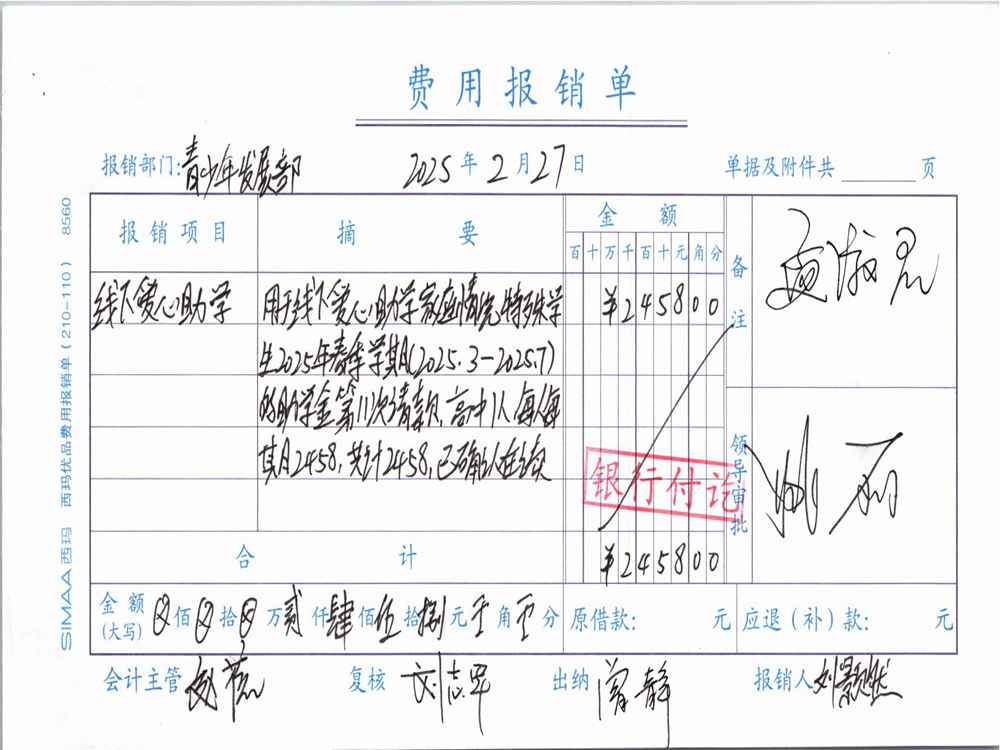 费用报销单
报销部门:青少年发展部 2025年2月27日 单据及附件共 页
报销项目 摘要 金额 备注
百十万千百十元角分
线下爱心助学 用于线下爱心助学家庭情况特殊学 ¥245800
生2025年春季学期(2025.3-2025.7)
的助学金第11次请款,高中1人,每人每
其月2458,共计2458,已确认在读
银行付讫
领导审批
合计 ¥245800
金额(大写) ⊗佰⊗拾⊗万贰仟肆佰伍拾捌元零角零分 原借款: 元 应退(补)款: 元
会计主管 复核 刘志军 出纳 曾静 报销人 刘颢然
SIMAA西玛 西玛优品费用报销单(210-110) 8560